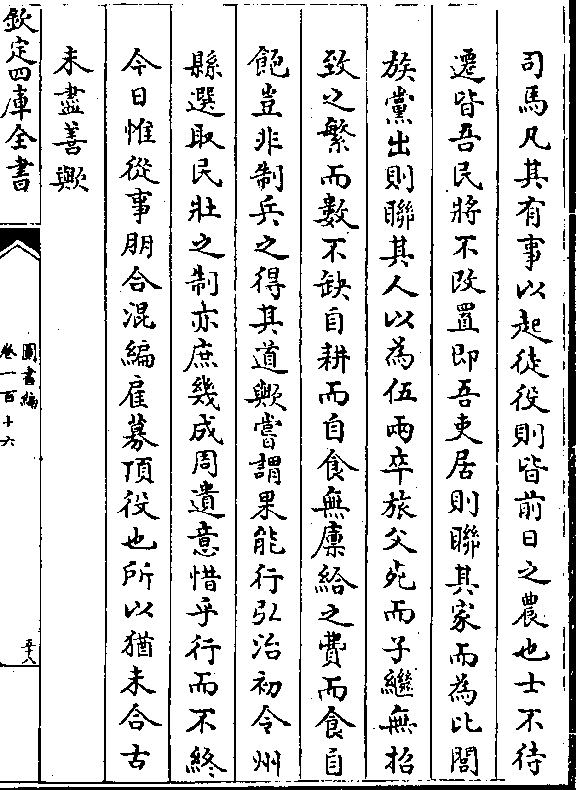 司馬凡其有事以起徒役則皆前日之農也士不待
遷皆吾民將不改置即吾吏居則聯其家而為比閭
族黨出則聯其人以為伍兩卒旅父死而子繼無招
致之繁而數不缺自耕而自食無廩給之費而食自
飽豈非制兵之得其道歟嘗謂果能行弘治初令州
縣選取民壯之制亦庶幾成周遺意惜乎行而不終
今日惟從事朋合混編雇募頂役也所以猶未合古
未盡善歟
欽定四庫全書
圖書編
卷一百十六